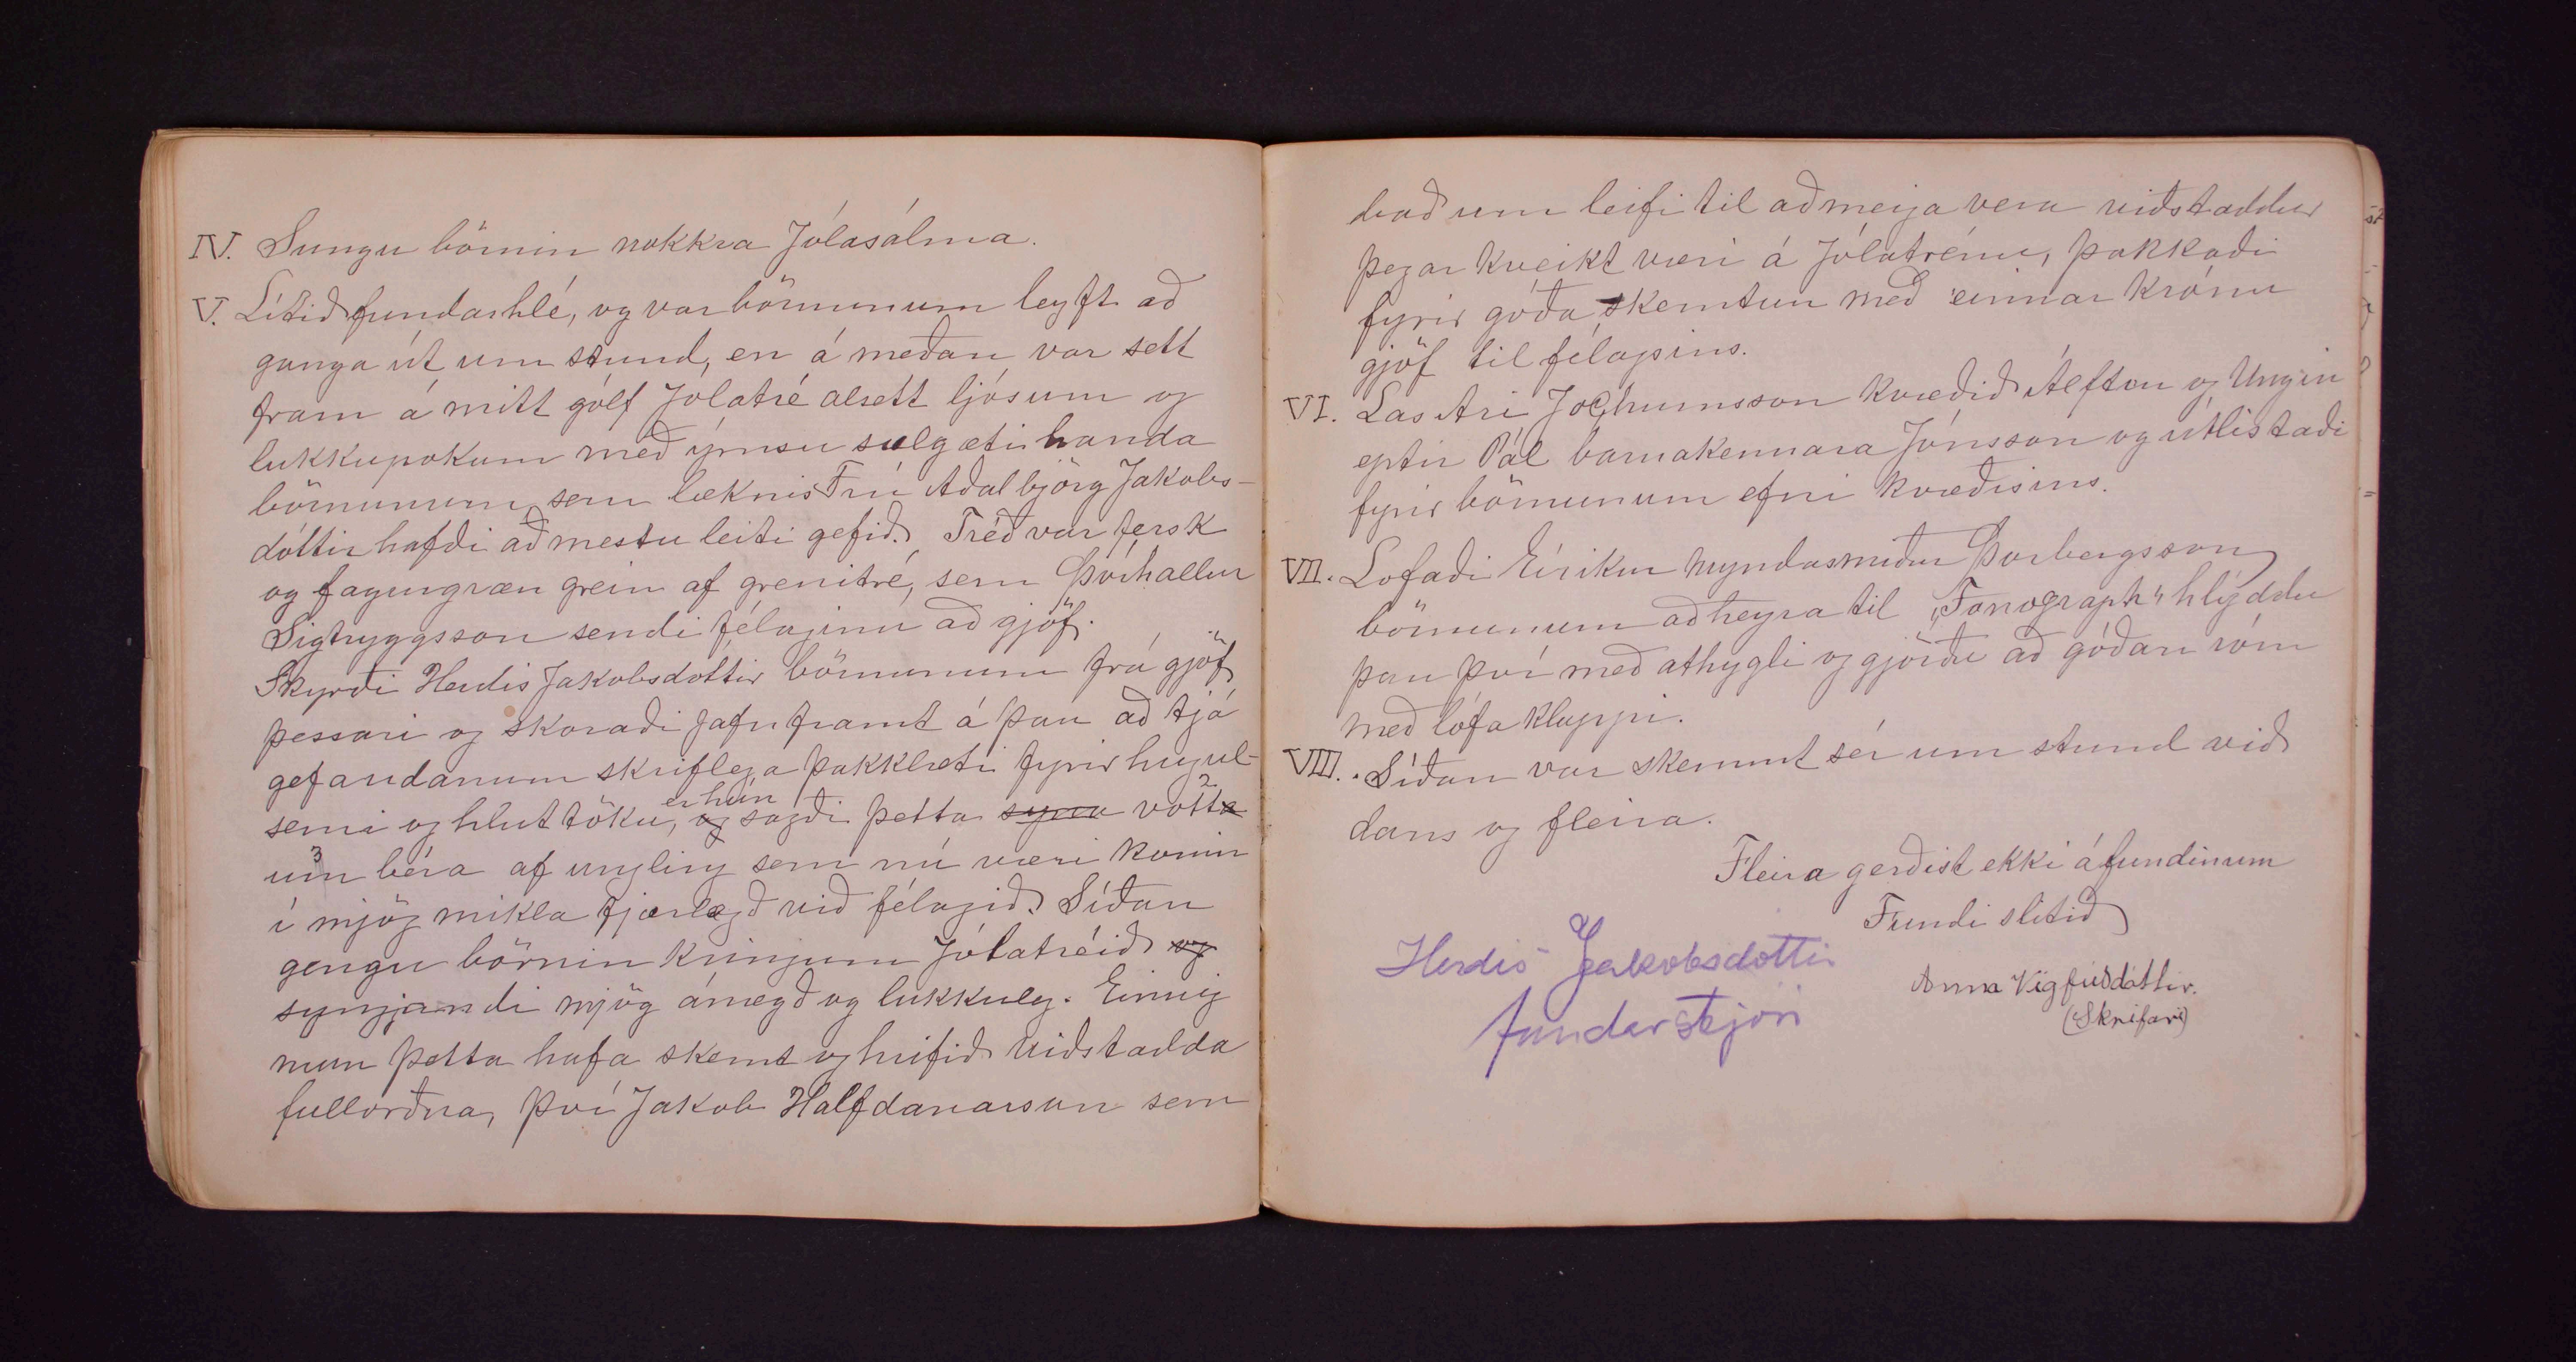 IV. Sungu börnin nokkra Jólasálma.
V. Lítið fundarhlé, og var börnunum leyft að
ganga út um stund, en á meðan var sett
fram á mitt gólf Jólatré alsett ljósum og
lukkupokum með ýmsu sælgæti handa
börnunum, sem læknis Frú Aðalbjörg Jakobs-
dóttir hafði að mestu leiti gefið. Tréð var fersk
og fagurgræn grein af grenitré, sem Þórhallur
Sigtryggsson sendi félaginu að gjöf.
Skyrði Herdis Jakobsdóttir börnunum frá gjöf
þessari og skoraði jafnframt á þau að tjá
gefandanum skriflega þakklæti fyrir hugul-
semi og hluttöku, og er hún sagði þetta syna 2 votta
3 um bera af ungling sem nú væri komin
í mjög mikla fjarlægð við félagið. Síðan
gengu börnin kringum Jólatréið og
syngjandi mjög ánægð og lukkuleg. Einnig
mun þetta hafa skemt og hrifið viðstadda
fullorðna, því Jakob Halfdanarson sem
bað um leifi til að meiga vera viðstaddur
þegar kveikt væri á Jólatrénu, þakkaði
fyrir góða skemtun með einnar krónu
gjöf til félagsins.
VI. Las Ari Jochumsson kvæðið Álftin og Ungin
eptir Pál barnakennara Jónsson og útlistaði
fyrir börnunum efni kvæðisins.
VII. Lofaði Eirikur myndasmiður Þorbergsson
börnunum að heyra til „Fonograph" hlýddu
þau því með athygli og gjörðu að góðan róm
með lófaklappi.
VIII. Síðan var skemmt sér um stund við
dans og fleira.
Fleira gerðist ekki á fundinum
Fundi slitið
Herdis Jakobsdottir
fundarstjóri
Anna Vigfúsdóttir.
(Skrifari)